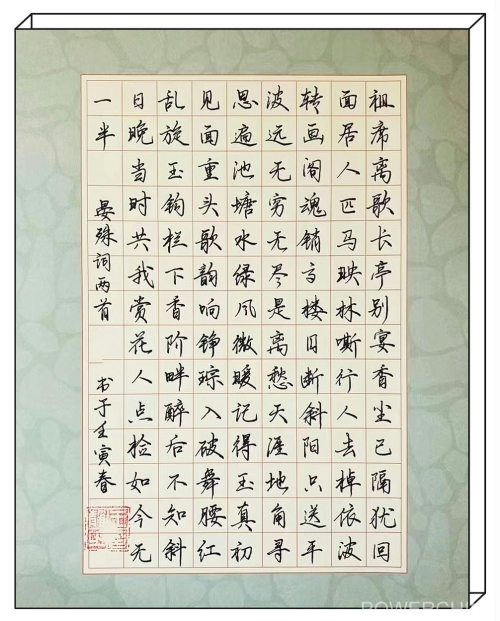 祖席离歌长亭别宴香尘已隔犹回
面居人匹马映林嘶行人去棹依波
转画阁魂销高楼目断斜阳只送平
波远无穷无尽是离愁天涯地角寻
思遍池塘水绿风微暖记得玉真初
见面重头歌韵响铮琮入破舞腰红
乱旋玉钩栏下香阶畔醉后不知斜
日晚当时共我赏花人点检如今无
一半 晏殊词两首 书于壬寅春